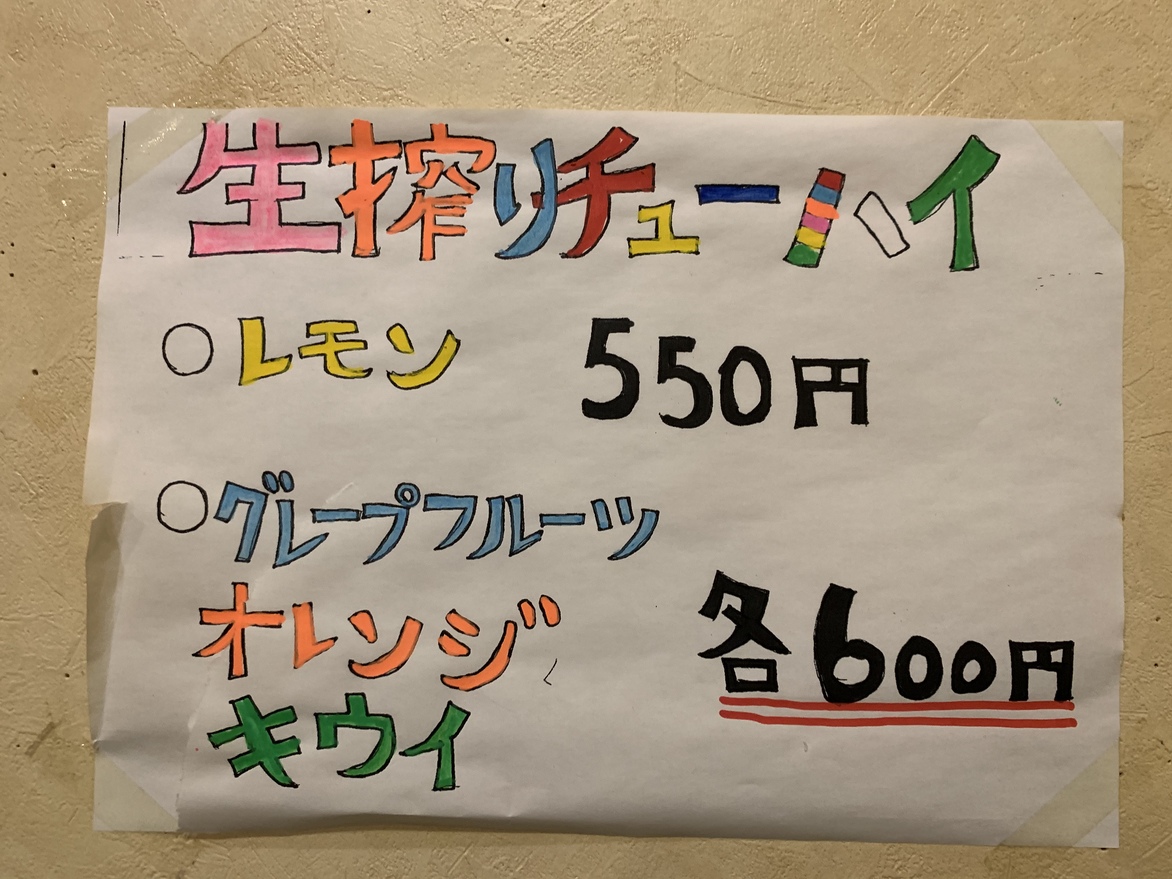 生搾りチューハイ
○レモン 550円
○グレープフルーツ
オレンジ
キウイ
各600円